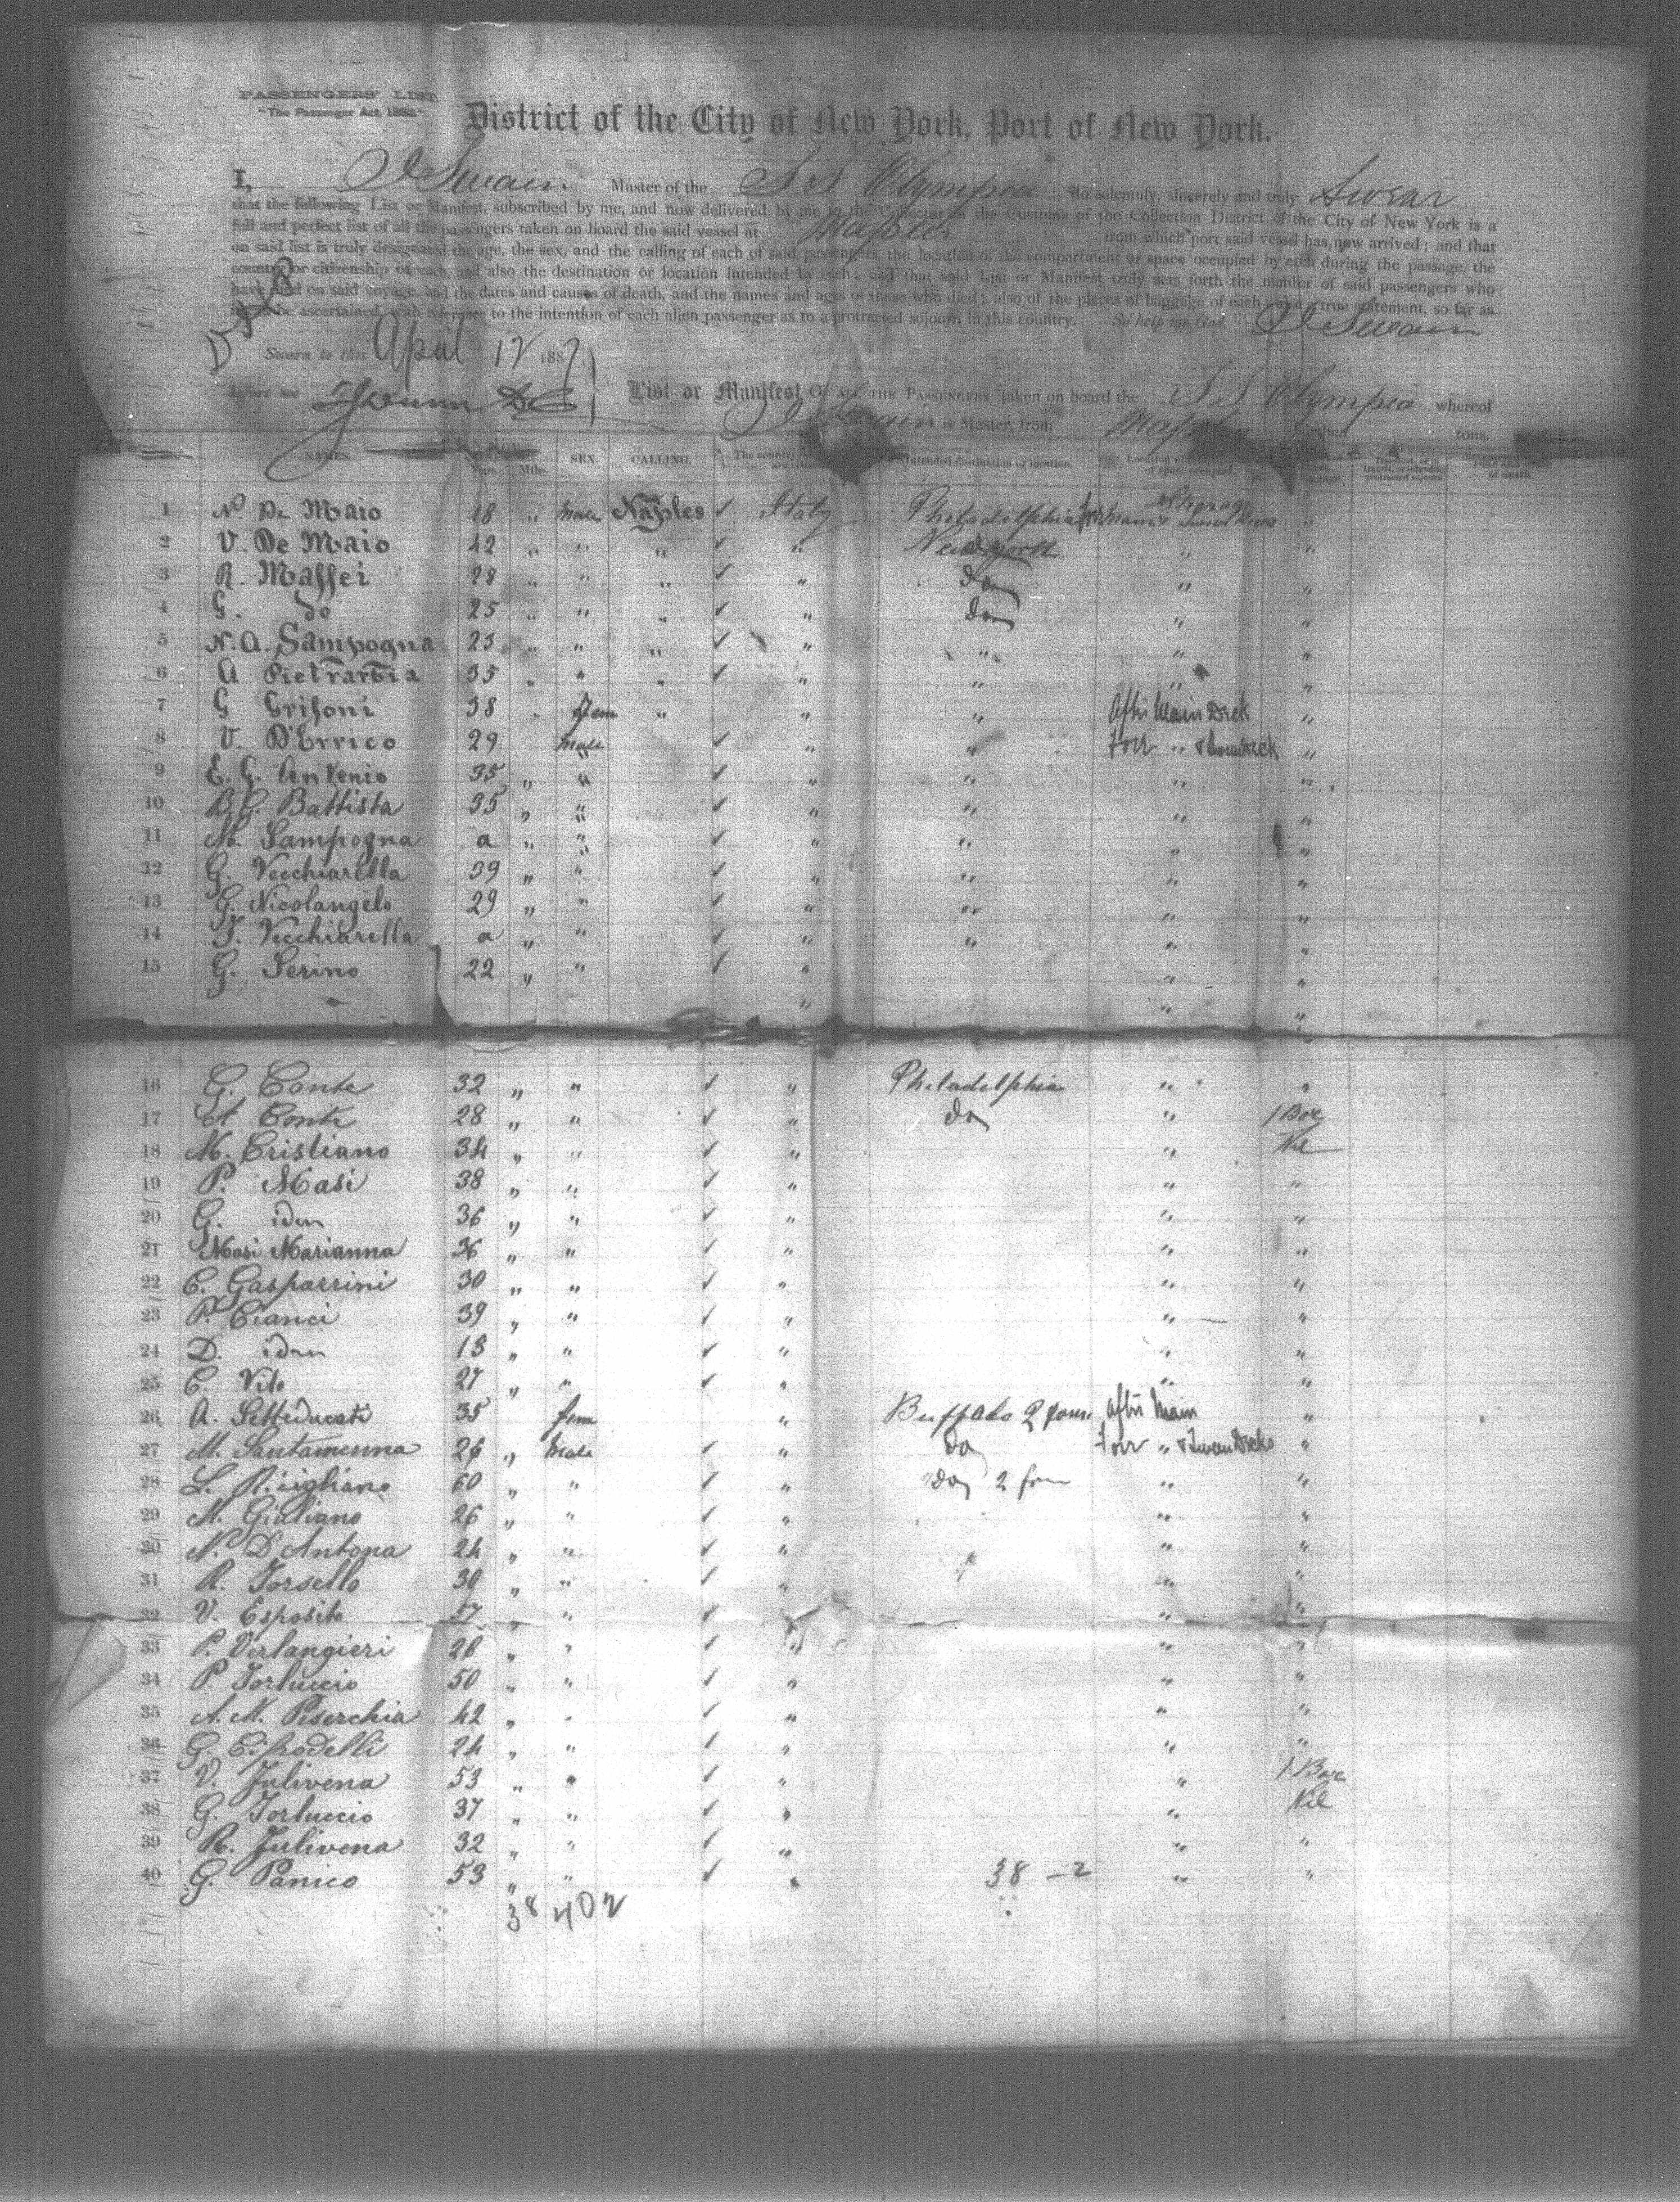 PASSENGERS' LIST.
"The Passenger Act, 1882."
District of the City of New York, Port of New York.
I, J Swain. Master of the S.S Olympia do solemnly, sincerely and truly Swear
that the following List or Manifest, subscribed by me, and now delivered by me to the Collector of the Customs of the Collection District of the City of New York is a
full and perfect list of all the passengers taken on board the said vessel at Naples from which port said vessel has now arrived; and that
on said list is truly designated the age, the sex, and the calling of each of said passengers, the location of the compartment or space occupied by each during the passage, the
country or citizenship of each, and also the destination or location intended by each; and that said List or Manifest truly sets forth the number of said passengers who
have died on said voyage, and the dates and causes of death, and the names and ages of those who died; also of the pieces of baggage of each; and a true statement, so far as
it can be ascertained, with reference to the intention of each alien passenger as to a protracted sojourn in this country. So help me God. J Swain
Sworn to this April 12 1887
before me
List or Manifest OF ALL THE PASSENGERS taken on board the S.S Olympia whereof
J Swain is Master, from Naples burthen tons.
NAMES. Years. Mths. SEX CALLING. The country Intended destination or location. Location of
1 N. De Maio 18 " Male Naples ✓ Italy Philadelphia
2 V. De Maio 42 " " " ✓ " New York " "
3 R. Maffei 28 " " " ✓ " do " "
4 G. do 25 " " " ✓ " do " "
5 N. A. Sampogna 25 " " " ✓ " " " "
6 A Pietraroia 35 " " " ✓ " " " "
7 G Grifoni 38 " Fem " " " After Main Deck "
8 V. D'Errico 29 Male ✓ " " Forr " "
9 E. G. Antonio 35 " " ✓ " " " "
10 B. G. Battista 35 " " ✓ " " " "
11 M. Sampogna a " " ✓ " " " "
12 G. Vecchiarella 39 " " ✓ " " " "
13 G. Nicolangelo 29 " " ✓ " " " "
14 F. Vecchiarella a " " ✓ " " " "
15 G. Serino 22 " " ✓ " " "
16 G. Conte 32 " " ✓ " Philadelphia " "
17 A Conte 28 " " ✓ " do " 1 Box
18 M. Cristiano 34 " " ✓ " " Nil
19 P. Masi 38 " " ✓ " " "
20 G. idem 36 " " ✓ " " "
21 Masi Marianna 36 " " ✓ " " "
22 C. Gasparrini 30 " " ✓ " " "
23 P. Cianci 39 " " ✓ " " "
24 D. idem 13 " " ✓ " " "
25 C. Vito 27 " " ✓ " " "
26 A. Setteducati 35 fem " Buffalo 2 After Main "
27 M. Santamenna 26 " Male ✓ " do Forr " "
28 L. Ricigliano 60 " " ✓ " do 2 " "
29 M. Giuliano 26 " " ✓ " " "
30 N. D'Antona 24 " " ✓ " " "
31 R. Torsello 30 " " ✓ " " "
32 V. Esposito " " ✓ " " "
33 P. Verlangieri 26 " " ✓ " " "
34 P. Torluccio 50 " " ✓ " " "
35 A. M. Piserchia 42 " " ✓ " " "
36 24 " " ✓ " " "
37 V. Julivena 53 " " ✓ " " 1 Box
38 G. Torluccio 37 " " ✓ " " Nil
39 R. Julivena 32 " " ✓ " " "
40 G. Panico 53 " " ✓ " 38 - 2 " "
38 402